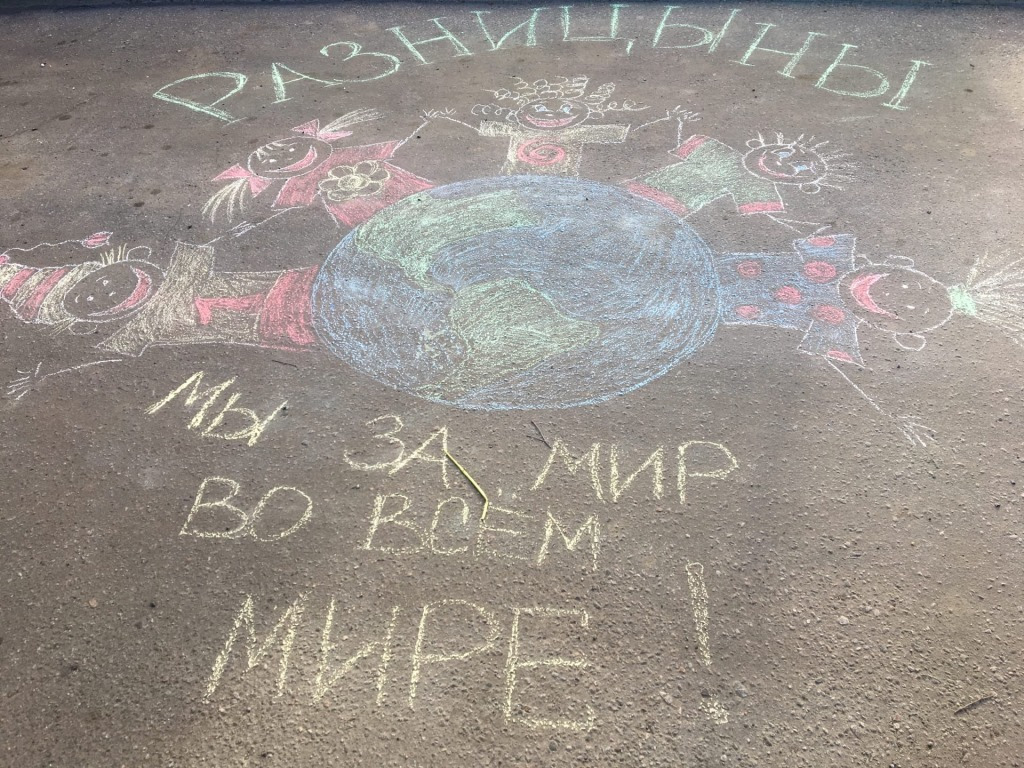 РАЗНИЦЫНЫ
МЫ ЗА МИР
ВО ВСЁМ
МИРЕ!